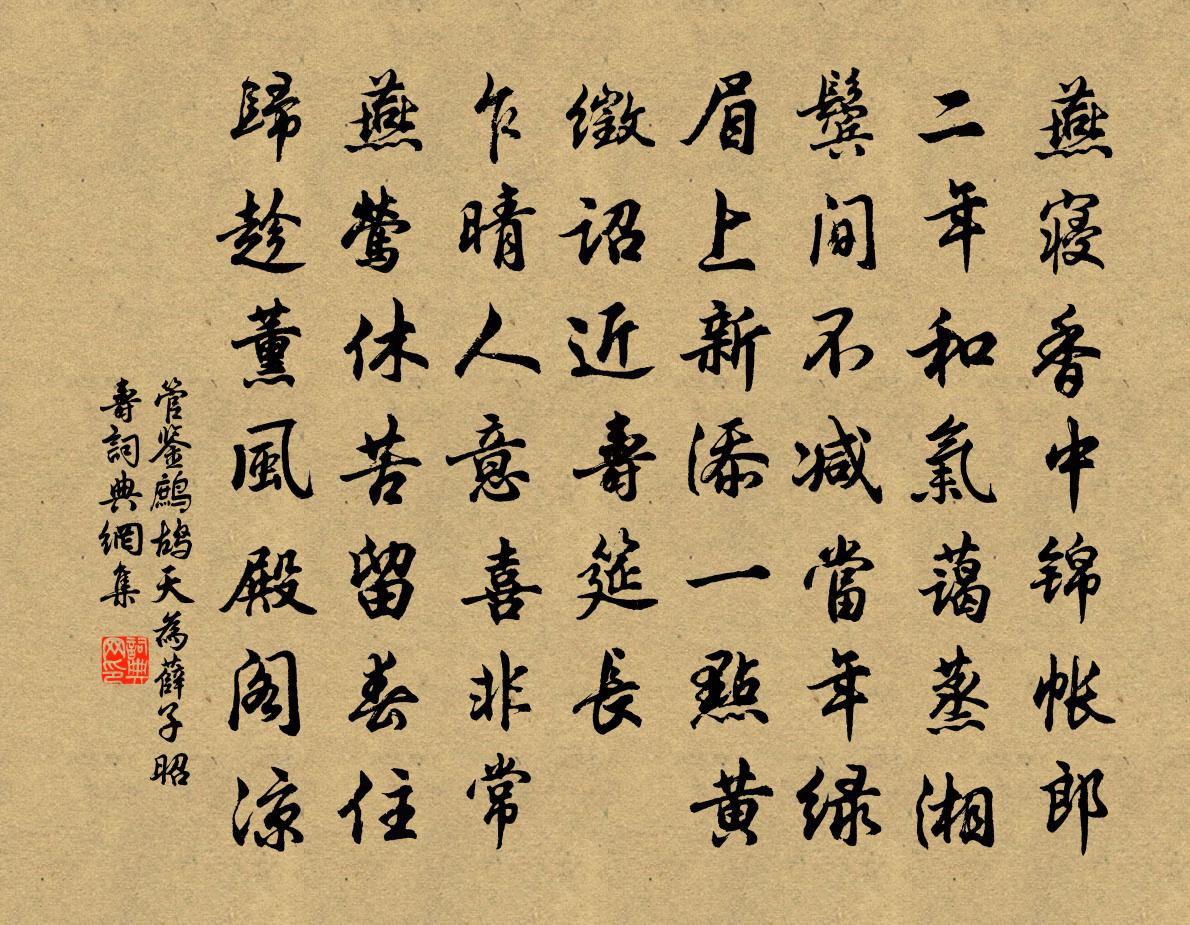 燕寝香中锦帐郎
二年和氣蔼蒸湘
鬓间不减當年绿
眉上新添一點黄
徵詔近壽筵長
乍晴人意喜非常
燕鶯休苦留春住
歸趁薰風殿阁凉
管鉴鷓鴣天為薛子昭
壽詞典網集
詞典网印